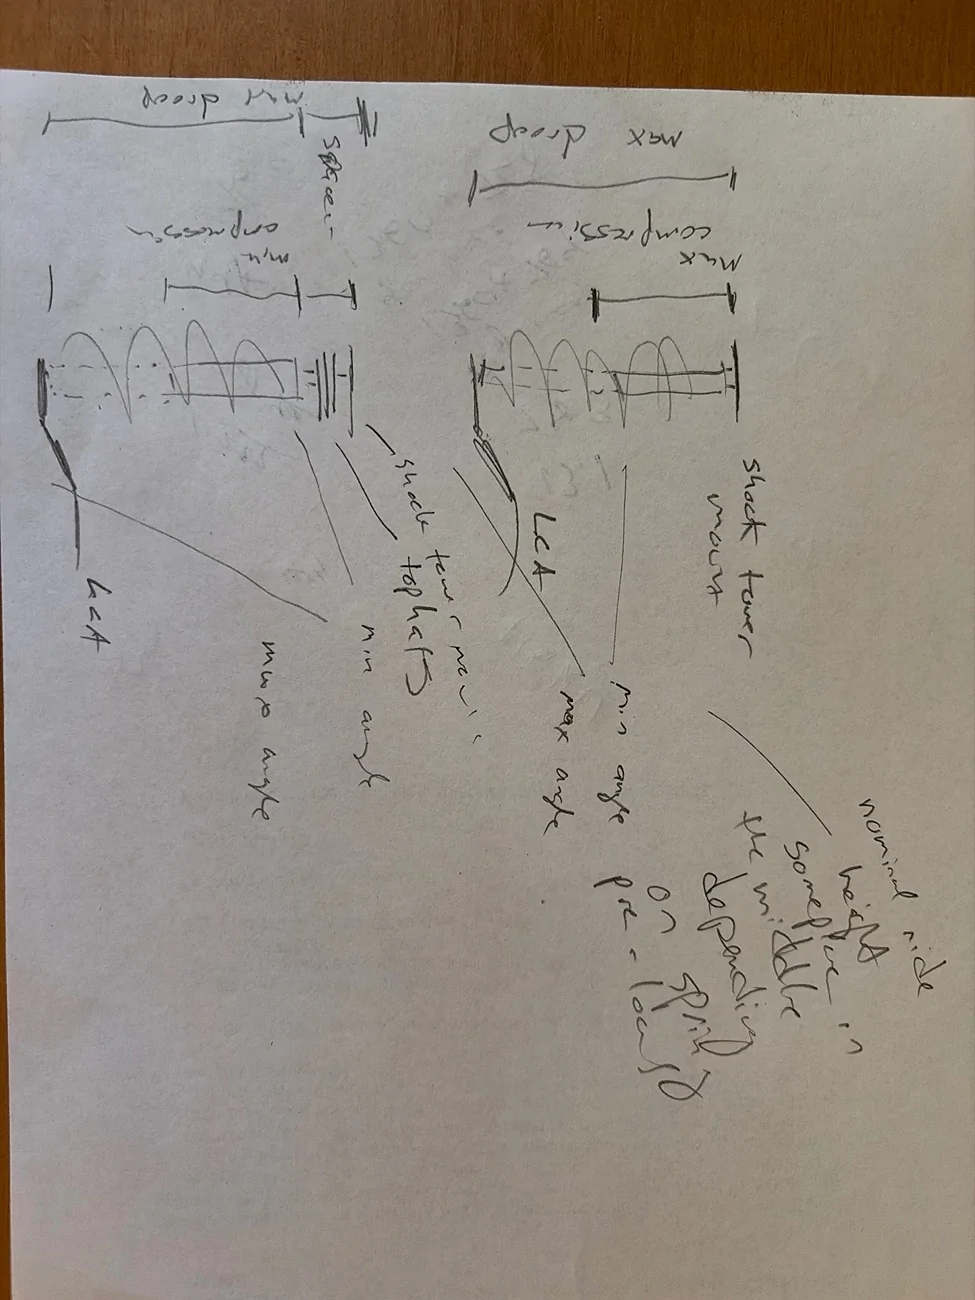 max droop
max
compression
shock tower
mount
LCA
min angle
max angle
nominal ride
height
someplace in
the middle
depending
on
pre-load
max droop
spacer
min
compression
shock tower
tophats
min angle
max angle
LCA